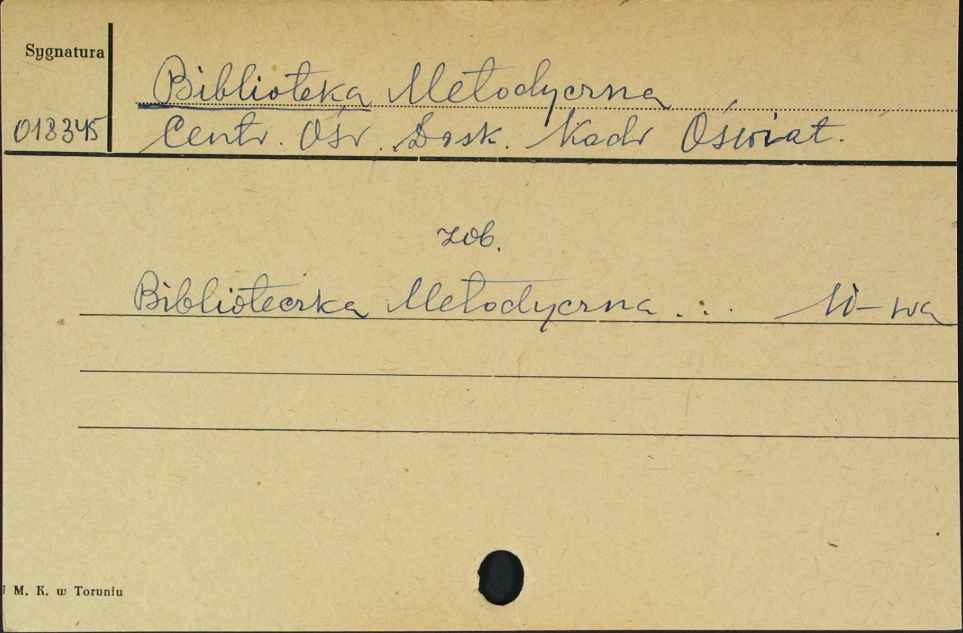 Sygnatura
Biblioteka Metodyczna
018345
Centr. Ośr. Dosk. Kadr Oświat.
zob.
Biblioteczka Metodyczna ... W-wa
M. K. w Toruniu